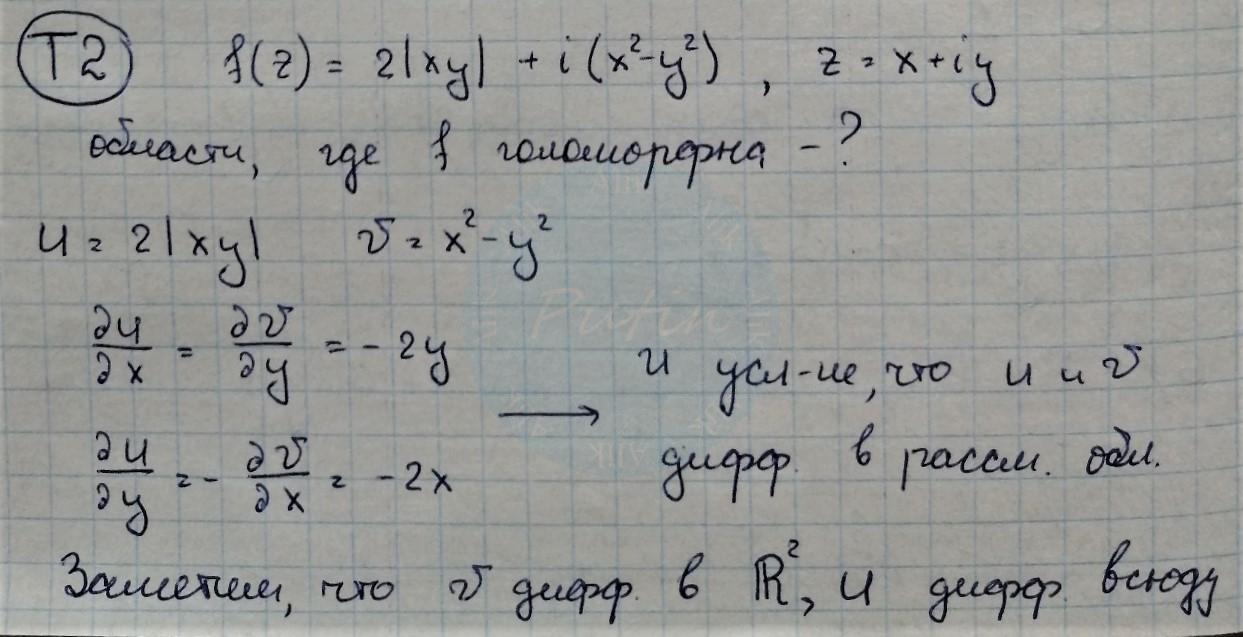 T2 f(z) = 2|xy| + i(x²-y²), z = x+iy
области, где f голоморфна - ?
u = 2|xy| v = x²-y²
∂u/∂x = ∂v/∂y = -2y
и усл-ие, что u и v
∂u/∂y = - ∂v/∂x = -2x
→
дифф. в рассм. обл.
Заметим, что v дифф. в ℝ², u дифф. всюду